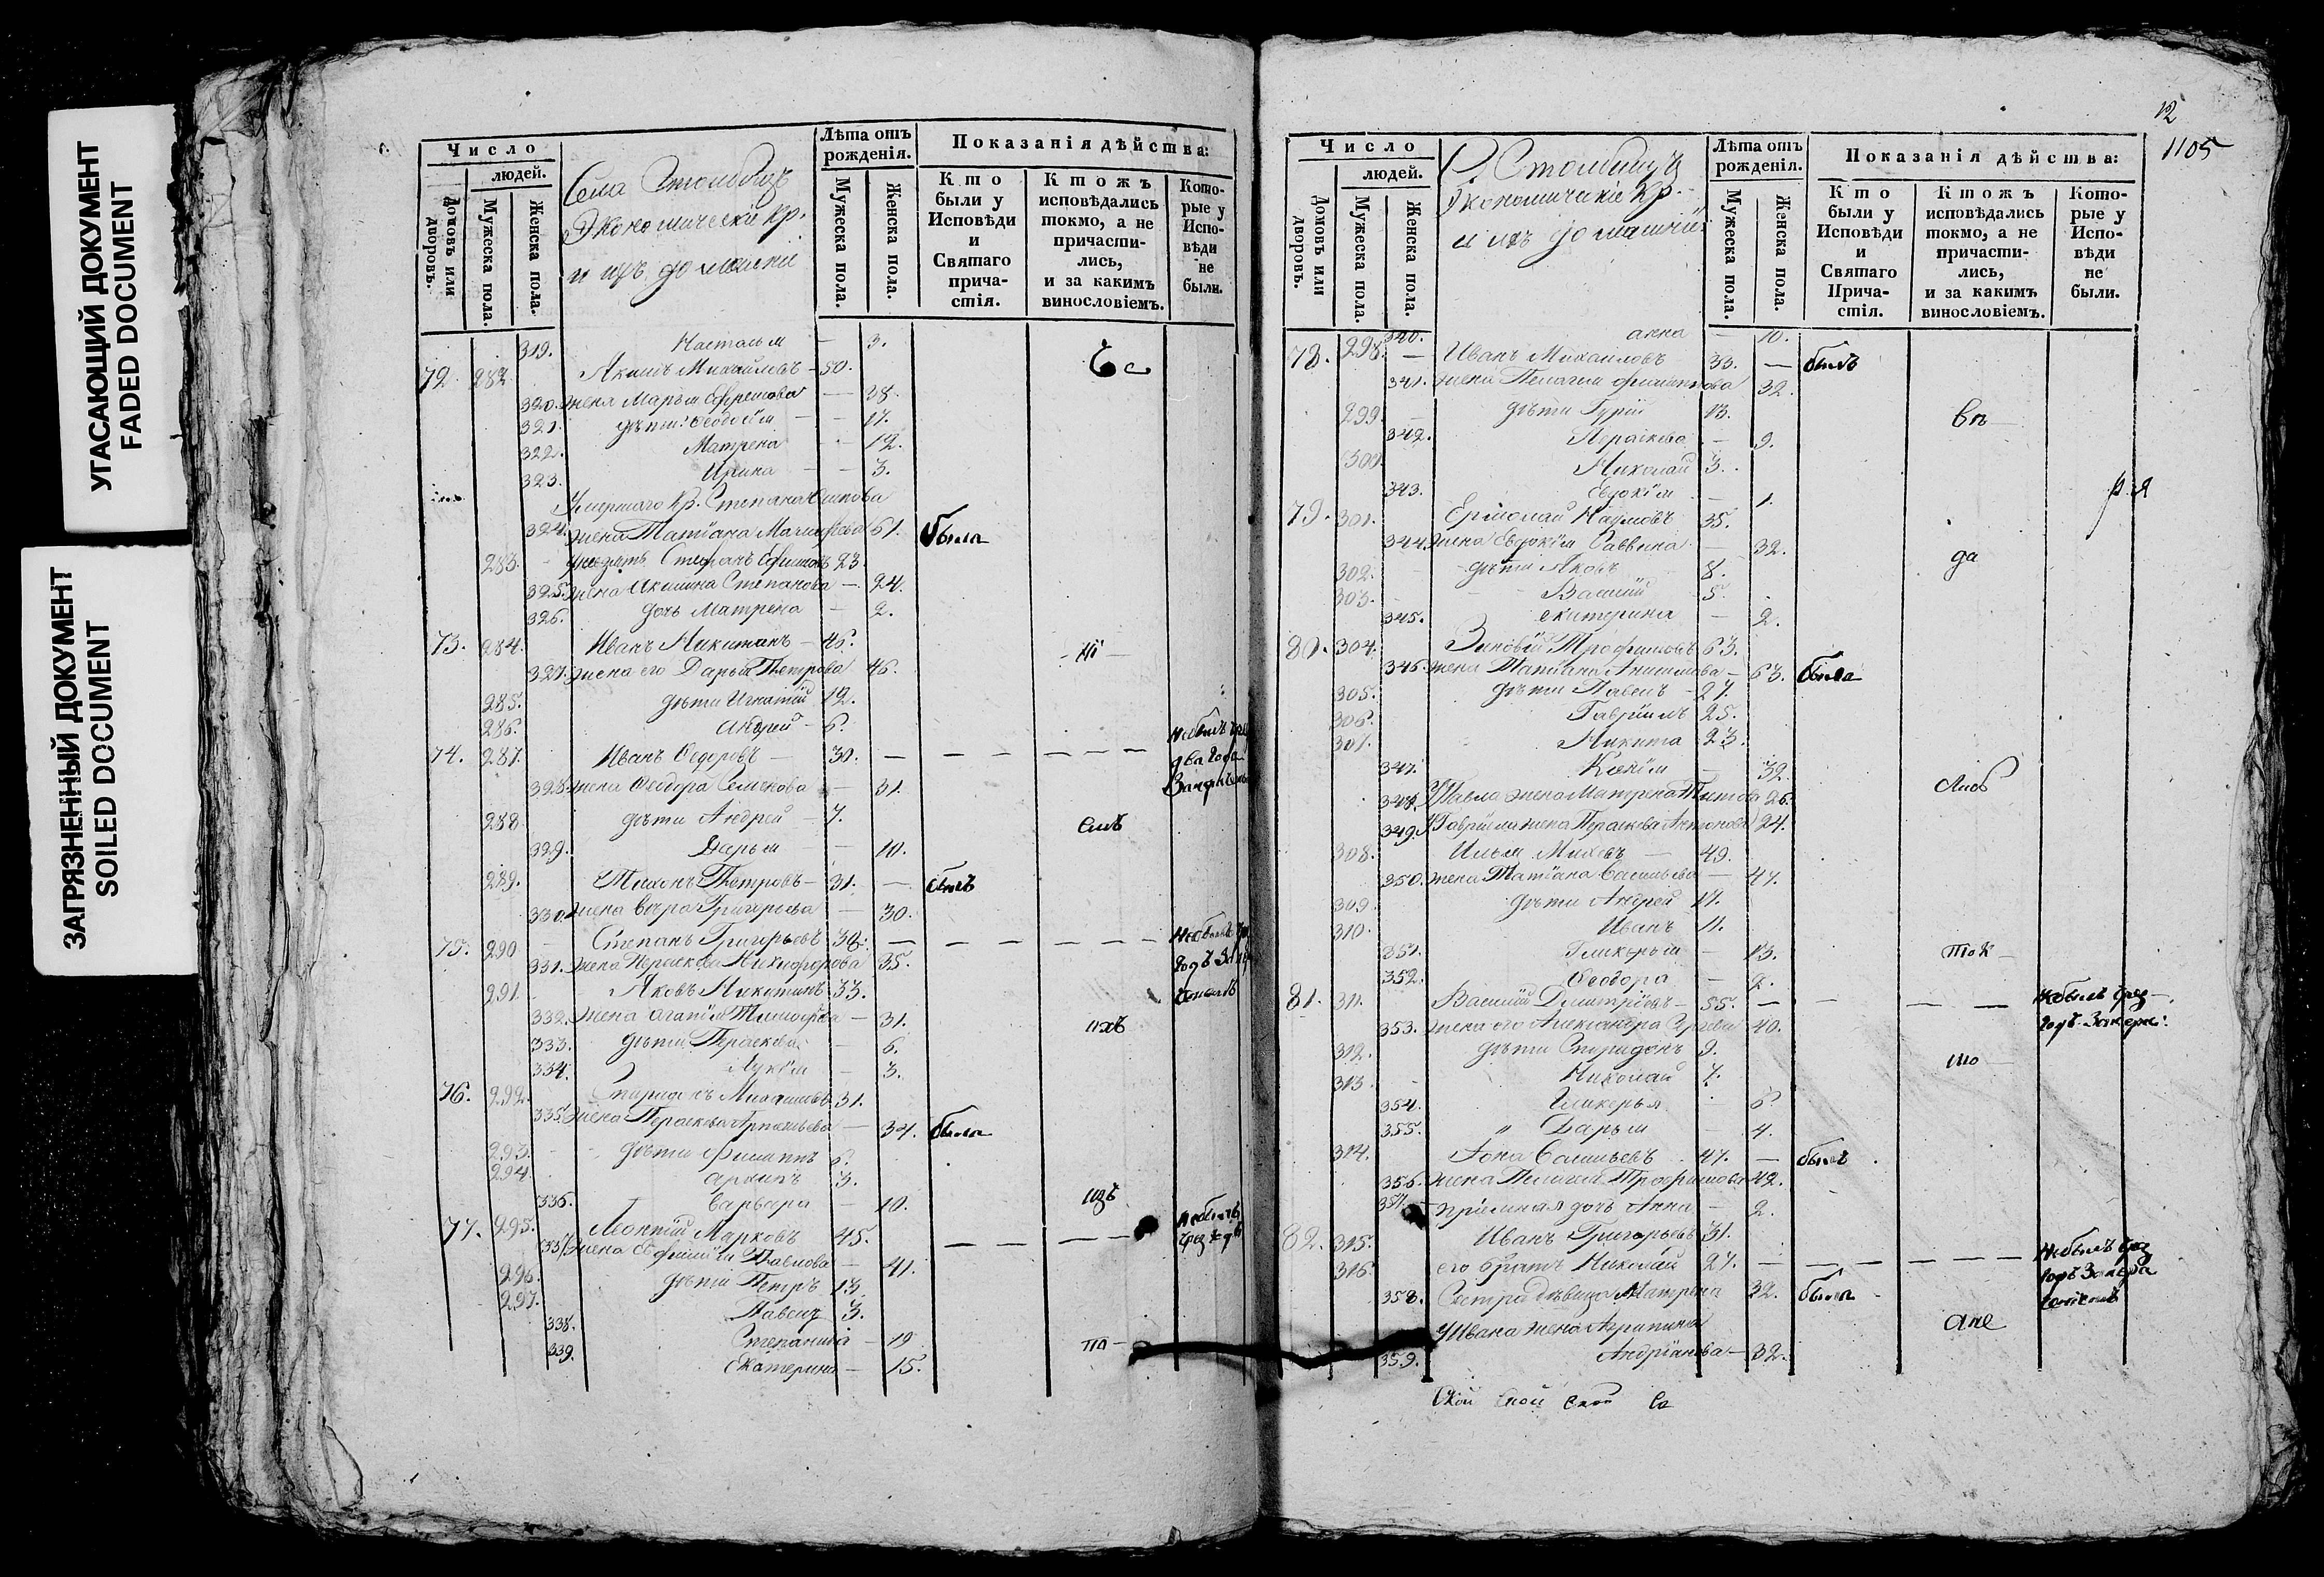 УГАСАЮЩИЙ ДОКУМЕНТ
FADED DOCUMENT
ЗАГРЯЗНЕННЫЙ ДОКУМЕНТ
SOILED DOCUMENT
Число
людей.
Домовъ или дворовъ.
Мужеска пола.
Женска пола.
Села
Экономическіе кр.
и ихъ домашніе
Лѣта отъ рожденія.
Мужеска пола.
Женска пола.
Показанія дѣйства:
Кто были у Исповѣди и Святаго причастія.
Ктожъ исповѣдались токмо, а не причастились, и за какимъ винословіемъ.
Которые у Исповѣди не были.
319. Настасья — 3.
72. 282. Акимъ Михайловъ — 50.
320. жена Марья Ефремова — 38.
321. дѣти: Феодосія — 17.
322. Матрена — 12.
323. Ирина — 3.
Умершаго кр. Степана
324. жена Татіана 61. была
283. Стефанъ Ефимовъ 23
325. жена Акилина Степанова — 24.
326. дочь Матрена — 2.
73. 284. Иванъ Никитинъ — 46.
327. жена его Дарья Петрова 46.
285. дѣти Игнатій 12.
286. Андрей — 6.
74. 287. Иванъ Федоровъ — 30. —
328. жена Феодора Семенова — 31.
288. дѣти Андрей — 7.
329. Дарья — 10.
289. Тихонъ Петровъ — 31. — былъ
330. жена Вѣра Григорьева — 30.
75. 290 Степанъ Григорьевъ 38. —
331. жена Параскева Никифорова 35.
291. Яковъ Никитинъ 33.
332. жена Агафія Тимофеева — 31. ихъ
333. дѣти Параскева — 6.
334. Лукія — 3.
76. 292. Михайловъ 31.
335. жена Параскева — 34. была
293. дѣти Филиппъ 6.
294. Архипъ 3.
336. Варвара — 10.
77. 295. Леонтій Марковъ 45.
337. жена Ефимія Павлова — 41.
296. дѣти Петръ 13.
297. Павелъ 3.
338. Степанида — 19
339. Екатерина — 15.
12
1105
Число
людей.
Домовъ или дворовъ.
Мужеска пола.
Женска пола.
Экономическіе кр.
и ихъ домашніи
Лѣта отъ рожденія.
Мужеска пола.
Женска пола.
Показанія дѣйства:
Кто были у Исповѣди и Святаго Причастія.
Ктожъ исповѣдались токмо, а не причастились, и за какимъ винословіемъ.
Которые у Исповѣди не были.
340. анна — 10.
78. 298. — Иванъ Михайловъ 33. — былъ
341. жена Пелагия Филиппова 32.
299. дѣти Гурій 13.
342. Параскева — 9.
300. Николай 3.
343. Евдокія — 1.
79. 301. Ермолай Наумовъ 35.
344. жена Евдокія Саввина — 32. да
302. дѣти Яковъ 8.
303. Василій 5.
345. екатерина — 2.
80. 304. Зиновій Трофимовъ 63.
346. жена Татіана Анисимова — 63. была
305. дѣти Павелъ — 27.
306. Гавріилъ 25.
307. Никита 23.
347. Ксенія — 32.
348. У Павла жена Матрена Титова 26.
349. У Гавріила жена Параскева Антонова 24.
308. Илья — 49.
350. жена Татіана Савельева — 47.
309. дѣти Андрей 17.
310. Иванъ 11.
351. Гликерья — 13. ток
352. Феодора — 2.
81. 311. Василій Димитріевъ — 55. —
353. жена его Александра 40.
312. дѣти Спиридонъ 9.
313. Николай 7. мо
354. Гликерья — 6.
355. " Дарья — 4.
314. Іона Савельевъ 47. — былъ
356. жена Пелагея Трофимова 42.
357. пріемная дочь Анна — 2.
82. 315. Иванъ Григорьевъ 31.
316. его братъ Николай 27. —
358. Сестра дѣвица Матрена 32. была
У Ивана жена Агрипина
359. Андріанова — 32. ане